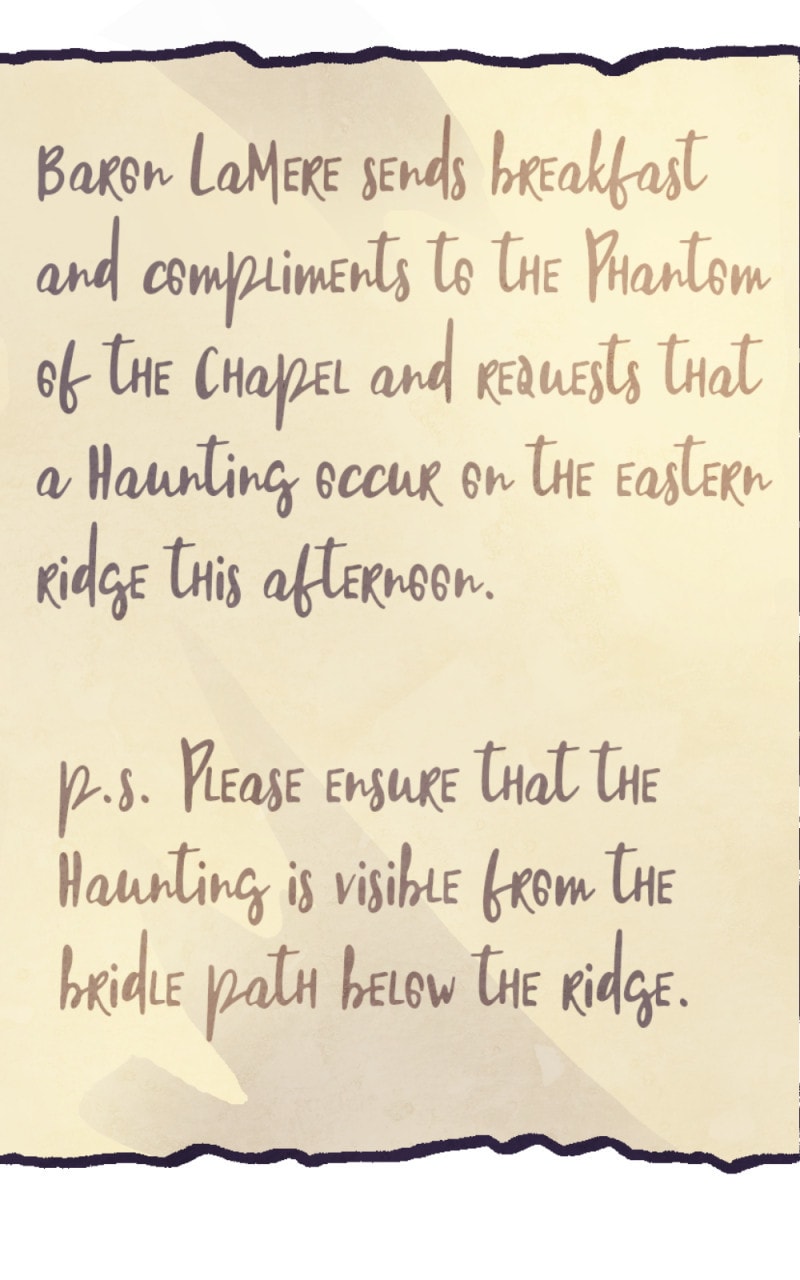 Baron LaMere sends breakfast
and compliments to the Phantom
of the Chapel and requests that
a Haunting occur on the eastern
ridge this afternoon.
p.s. Please ensure that the
Haunting is visible from the
bridle path below the ridge.